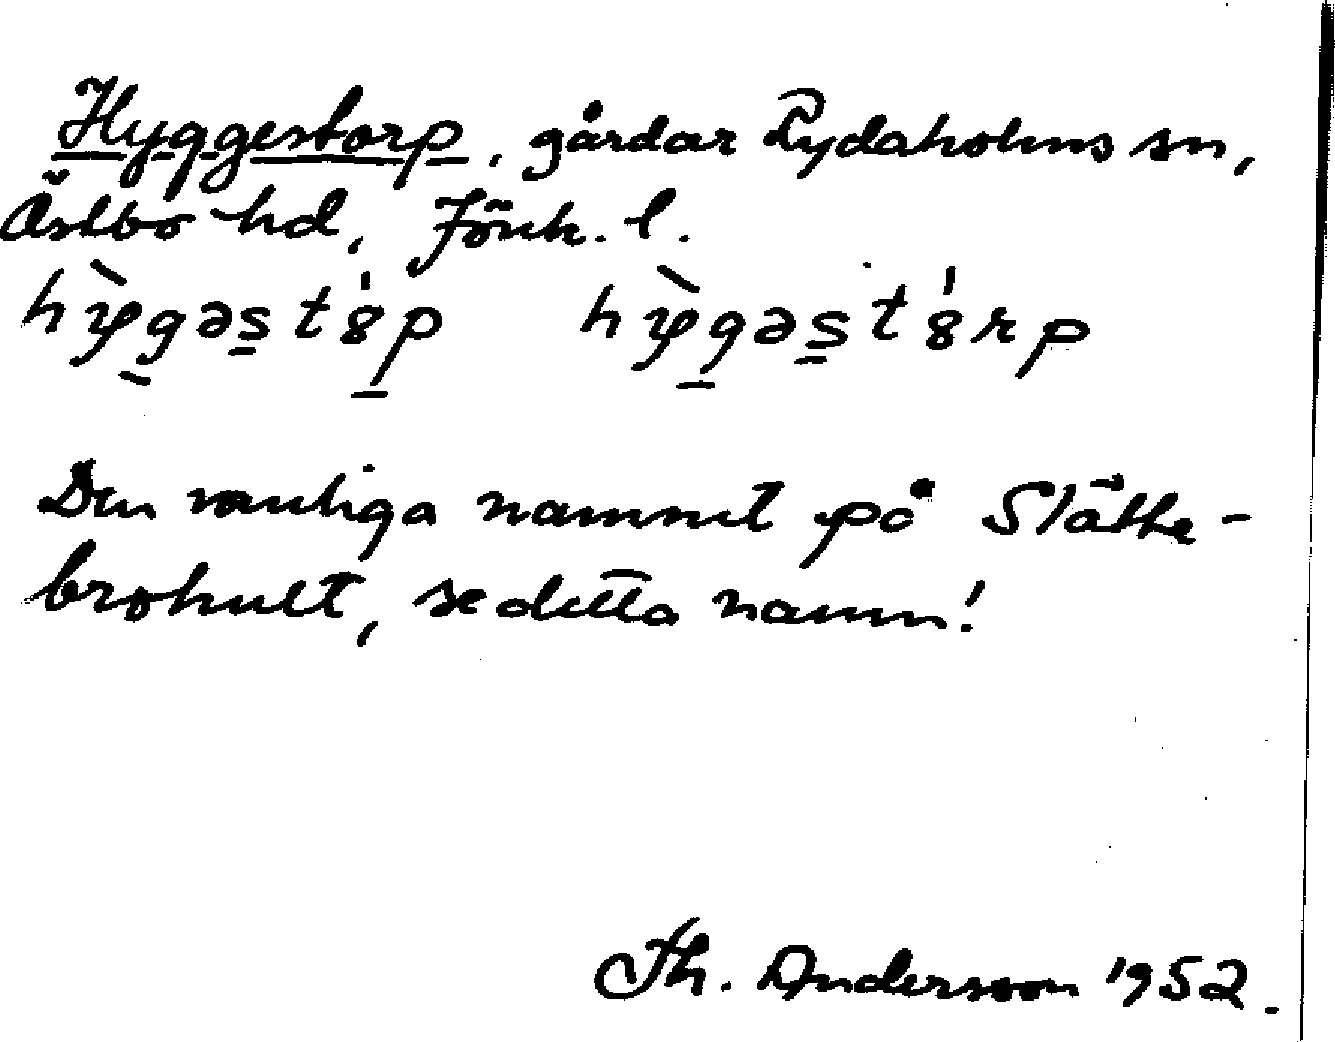 Hyggestorp, gårdar Rydaholms sn,
Östbo hd, Jönk. l.
Den vanliga namnet på Slätte-
brohult, se detta namn!
Th. Andersson 1952.